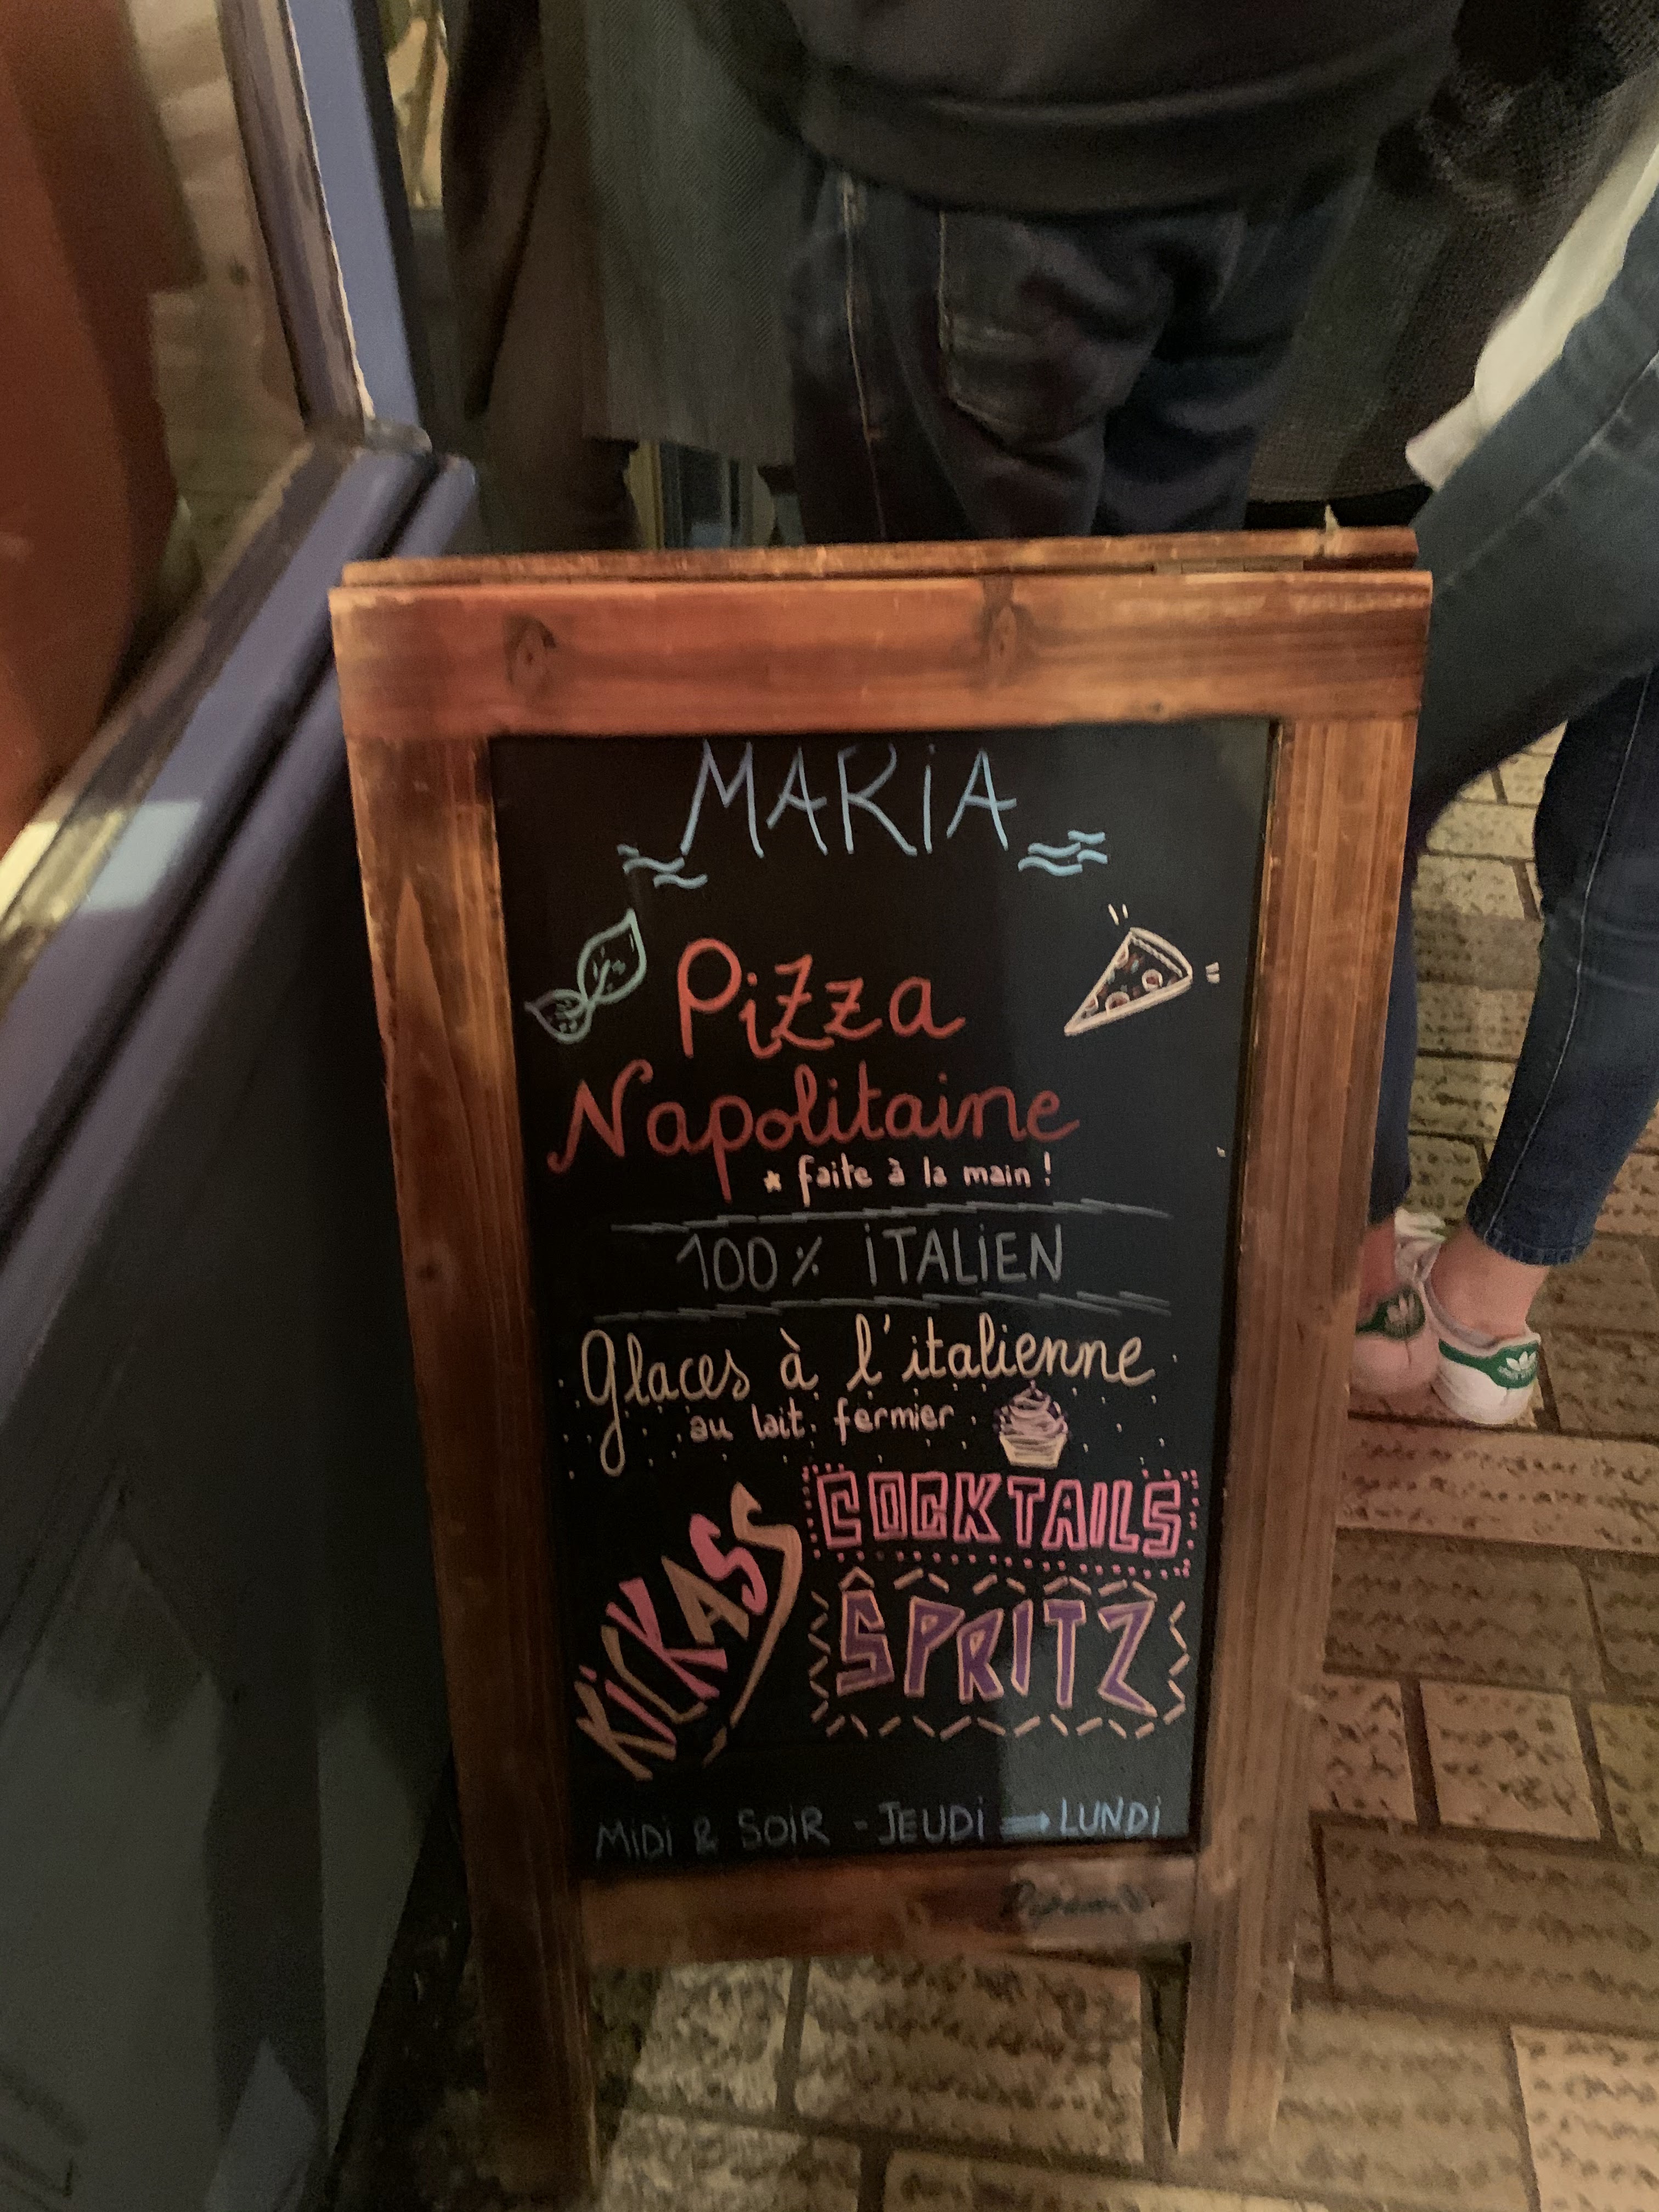 MARIA
Pizza
Napolitaine
* faite à la main !
100% ITALIEN
Glaces à l'italienne
au lait fermier
KICKASS
COCKTAILS
SPRITZ
MIDI & SOIR - JEUDI → LUNDI